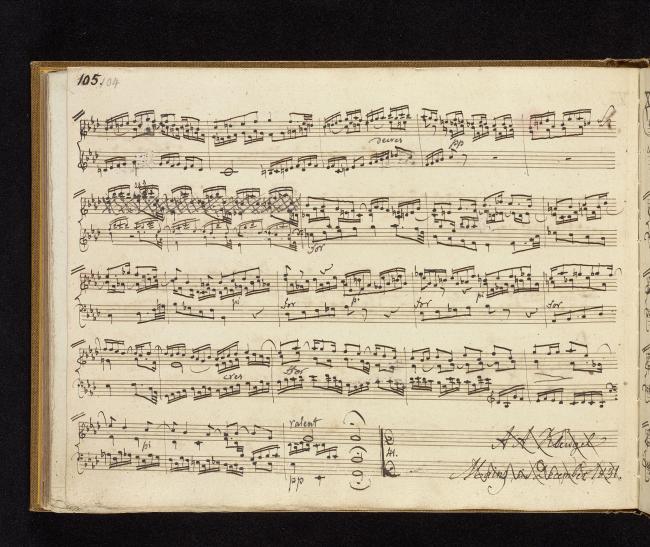 105. 104
decres
pp
for
pi for pi for pi for
cres for
pi ralent
pp
41.
A A Klengel
December 1831.